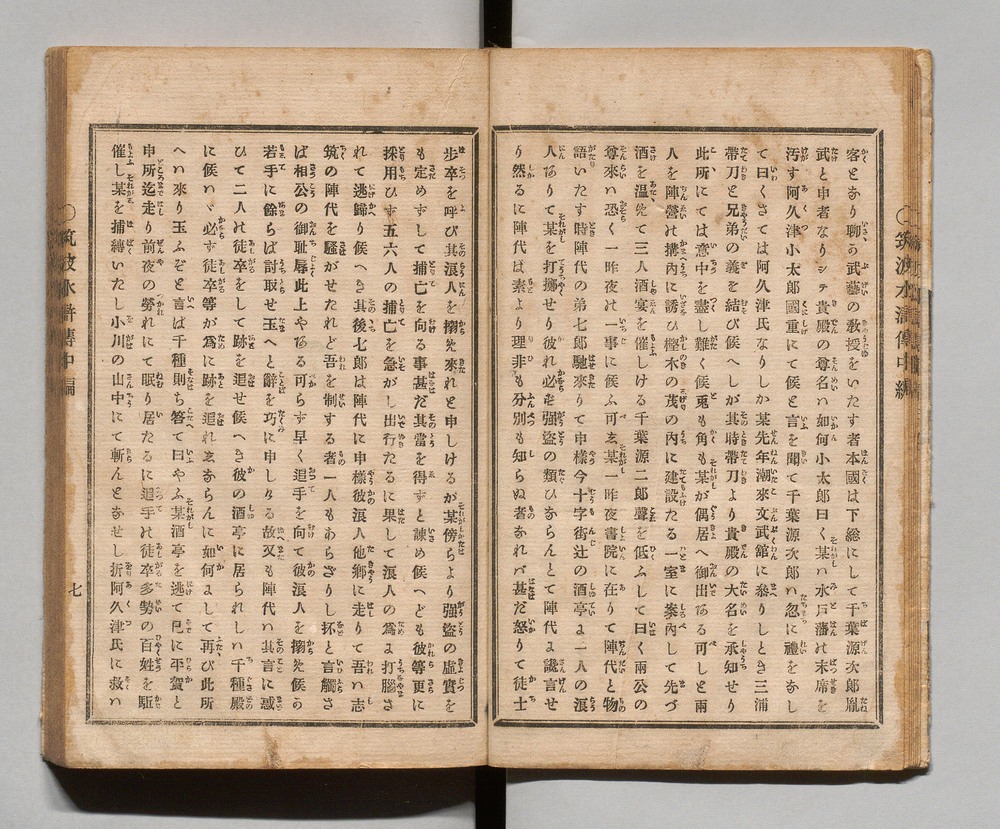 客となり聊の武藝の敎授をいたす者本國は下総にして千葉源次郎胤
武と申者なりシテ貴殿の尊名は如何小太郎曰く某は水戸藩の末席を
汚す阿久津小太郎國重にて候と言を聞て千葉源次郎は忽に禮をなし
て曰くさては阿久津氏なりしか某先年潮來文武館に參りしとき三浦
帶刀と兄弟の義を結び候へしが其時帶刀より貴殿の大名を承知せり
此所にては意中を盡し難く候兎も角も某が偶居へ御出ある可しと兩
人を陣營の搆內に誘ひ樫木の茂の內に建設たる一室に案內して先づ
酒を溫めて三人酒宴を催しける千葉源二郎聲を低ふして曰く兩公の
尊來は恐く一昨夜の一事に候ふ可ゑ某一昨夜書院に在りて陣代と物
語いたす時陣代の弟七郎馳來りて申樣今十字街辻の酒亭よ一人の浪
人ありて某を打擲せり彼れ必ず强盜の類ひならんとて陣代よ讒言せ
り然るに陣代は素より理非も分別も知らぬ者なれバ甚だ怒りて徒士
歩卒を呼び其浪人を搦め來れと申しけるが某傍らより强盜の虛實を
も定めずして捕亡を向る事甚だ其當を得ずと諫め候へども彼等更に
採用ひず五六人の捕亡を急がし出行たるに果して浪人の爲よ打腦さ
れて逃歸り候へき其後七郎は陣代に申樣彼浪人他鄉に走りて吾は志
筑の陣代を騷がせたれど吾を制する者一人もあらざりし抔と言觸さ
ば相公の御耻辱此上やある可らず早く追手を向て彼浪人を搦め候の
若手に餘らば討取せ玉へと辭を巧に申しゝる故又も陣代は其言に惑
ひて二人の徒卒をして跡を追せ候へき彼の酒亭に居られしは千種殿
に候はヾ必ず徒卒等が爲に跡を追れゑならんに如何よして再び此所
へは來り玉ふぞと言へば千種則ち答て曰やふ某酒亭を逃て巳に平賀と
申所迄走り前夜の勞れにて眠り居たるに追手の徒卒多勢の百姓を駈
催し某を捕縛いたし小川の山中にて斬んとなせし折阿久津氏に救は
〇筑波水滸傳中編
〇筑波水滸傳中編
七